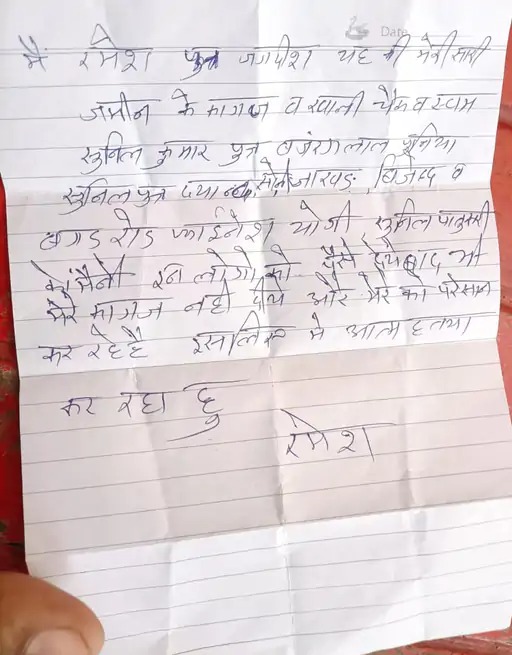 Date
मैं रमेश पुत्र जगदीश यह की मेरी सारी
जमीन के कागज व खाली चैक व स्टाम
सुनिल कुमार पुत्र बजरंग लाल पुनिया
सुनिल पुत्र दयानन्द, जाखड़ बिजेन्द्र व
बगड रोड फाईनेश योगी सुनिल
को मैंने इन लोगों को पैसे देय बाद भी
मेरे कागज नही दीये और मेरे का परेसान
कर रहे है इसलिए मे आत्म हत्या
कर रहा हु
रमेश